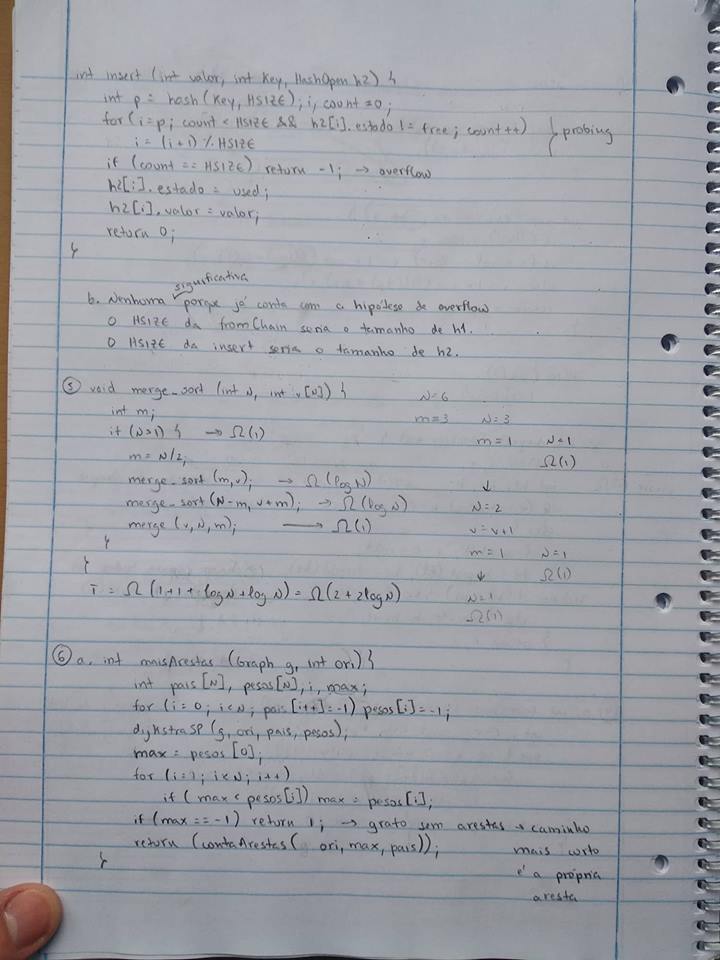 int insert (int valor, int Key, HashOpen h2) {
int p = hash (Key, HSIZE); i, count = 0;
for (i=p; count < HSIZE && h2[i].estado != free; count++) } probing
i = (i+1) % HSIZE
if (count == HSIZE) return -1; → overflow
h2[i].estado = used;
h2[i].valor = valor;
return 0;
}
significativa
b. Nenhuma porque já conta com a hipótese de overflow
O HSIZE da fromChain seria o tamanho de h1.
O HSIZE da insert seria o tamanho de h2.
5 void merge_sort (int N, int v[N]) {
int m;
if (N>1) { → Ω(1)
m = N/2;
merge_sort (m,v); → Ω(logN)
merge_sort (N-m, v+m); → Ω(logN)
merge (v,N,m); → Ω(1)
}
}
T = Ω(1+1+logN+logN) = Ω(2+2logN)
N=6
m=3 N=3
m=1 N=1
Ω(1)
↓
N=2
v=v+1
m=1 N=1
↓ Ω(1)
N=1
Ω(1)
6 a. int maisArestas (Graph g, int ori) {
int pais[N], pesos[N], i, max;
for (i=0; i<N; pais[i++]=-1) pesos[i]=-1;
dijkstraSP (g, ori, pais, pesos);
max = pesos[0];
for (i=1; i<N; i++)
if (max < pesos[i]) max = pesos[i];
if (max == -1) return 1; → grafo sem arestas → caminho
return (contaArestas( ori, max, pais)); mais curto
} é a própria
aresta